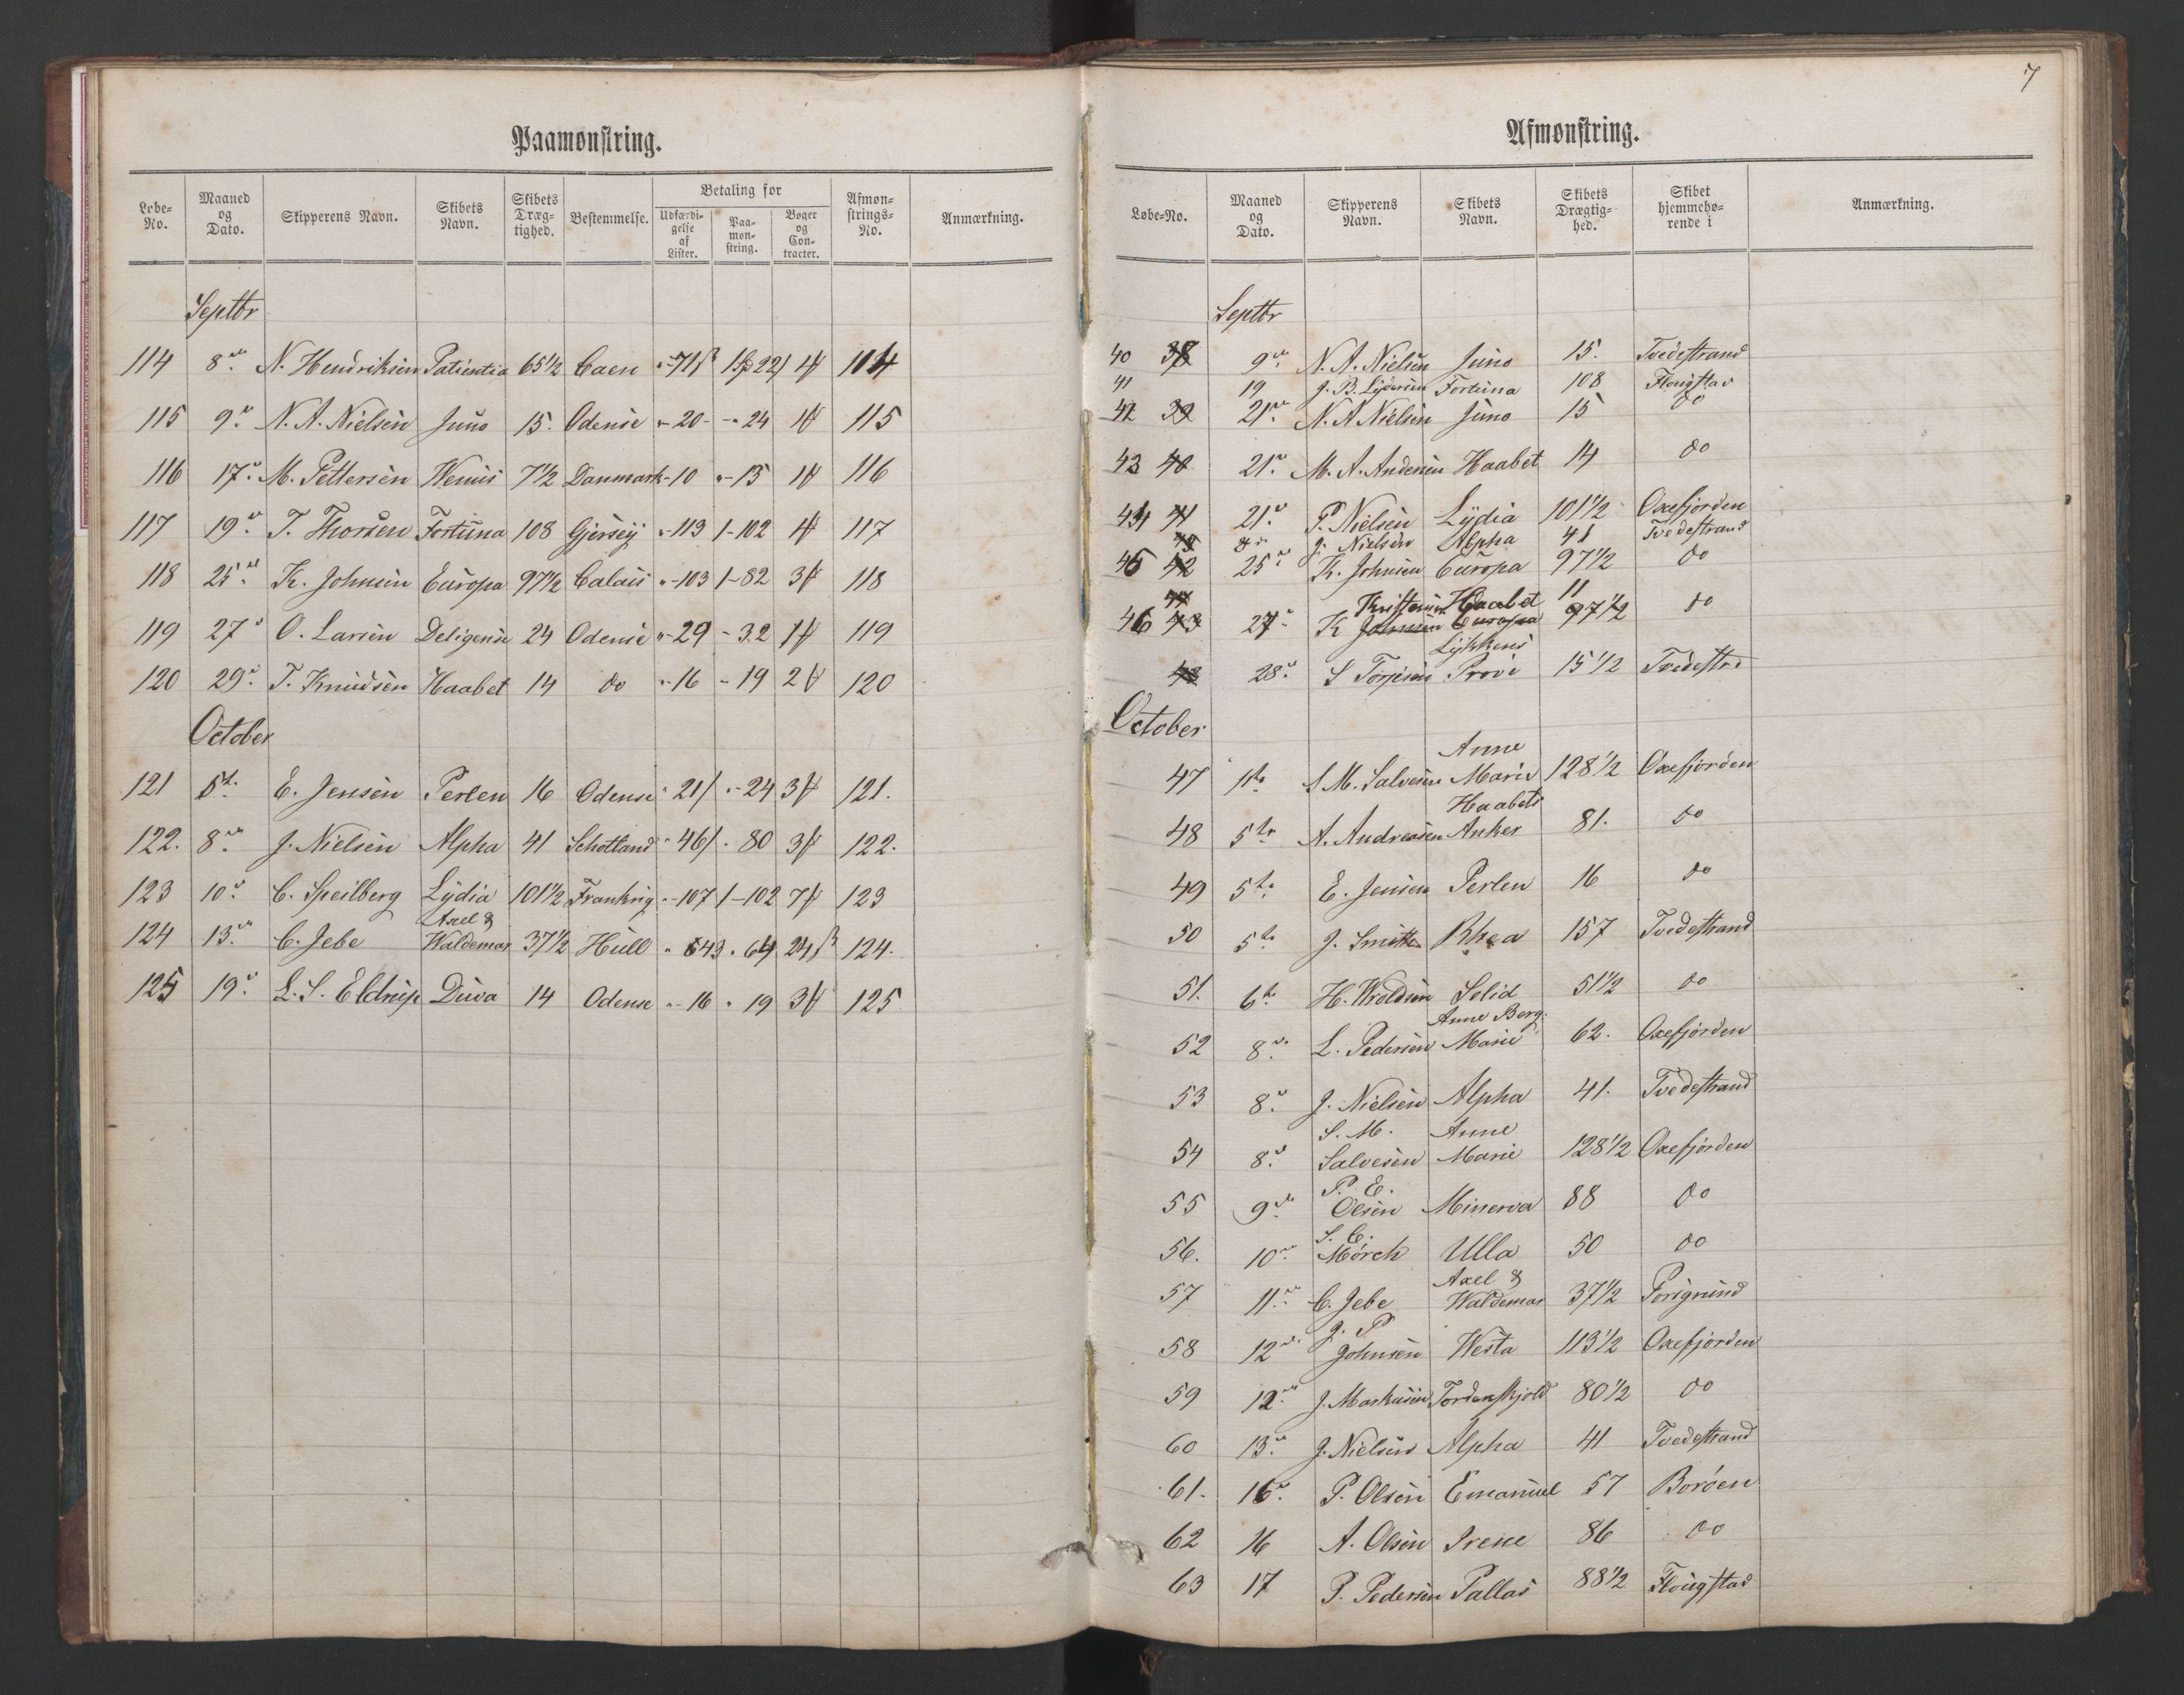 Paamønstring.
Løbe-No. Maaned og Dato. Skipperens Navn. Skibets Navn. Skibets Dræg-tighed. Bestemmelse. Betaling for Udfærdi-gelse af Lister. Paa-møn-string. Bøger og Con-tracter. Afmøn-strings-No. Anmærkning.
Septbr
114 8de N. Hendriksen Patientia 65 1/2 Caen 71 1 22 104
115 9de N. A. Nielsen Juno 15. Odense 20 24 115
116 17de M. Pettersen Wenus 7 1/2 Danmark 10 15 116
117 19de T. Thorsen Fortuna 108 Gjersey 113 1-102 117
118 25de K. Johnsen Europa 97 1/2 Calais 103 1-82 118
119 27de O. Larsen Deligense 24 Odense 29 32 119
120 29de T. Knudsen Haabet 14 do 16 19 120
October
121 5te E. Jensen Perlen 16 Odense 21 24 121.
122. 8de J. Nielsen Alpha 41 Schotland 46 80 122.
123 10de C. Speilberg Lydia 101 1/2 Frankrig 107 1-102 123
124 13de C. Jebe Axel & Waldemar 37 1/2 Hull 64 24 124.
125 19de L. S. Eldrup Duva 14 Odense 16 19 125
7
Afmønstring.
Løbe-No. Maaned og Dato. Skipperens Navn. Skibets Navn. Skibets Drægtig-hed. Skibet hjemmehø-rende i Anmærkning.
Septbr
40 9de N. A. Nielsen Juno 15. Tvedestrand
41 19 J. B. Lydersen Fortuna 108 Flougstad
42 21de N. A Nielsen Juno 15 do
43 40 21de M. A. Andersen Haabet 14 do
44 41 21de P. Nielsen Lydia 101 1/2 Oxefjorden
J. Nielsen Alpha 41 Tvedestrand
45 42 25de K. Johnsen Europa 97 1/2 do
46 43 27de K Johnsen Kristensen Europa Haabet 11 97 1/2 do
28de S Torjesen Lykkens Prøve 15 1/2 Tvedestrd
October
47 1te S. M. Salvesen Anne Marie 128 1/2 Oxefjorden
48 5te A. Andreasen Haabets Anker 81. do
49 5te E. Jensen Perlen 16 do
50 5te J. Smith Rhea 157 Tvedestrand
51. 6te H. Woldsen Solid 51 1/2 do
52 8de L. Pedersen Anne Berg. Marie 62. Oxefjorden
53 8de J. Nielsen Alpha 41. Tvedestrand
54 8de S. M. Salvesen Anne Marie 128 1/2 Oxefjorden
55 9de P. E. Olsen Minerva 88 do
56. 10de S. C. Mørch Ulla 50 do
57 11te C. Jebe Axel & Waldemar 37 1/2 Porsgrund
58 12te J. P Johnsen Westa 113 1/2 Oxefjorden
59 12te J. Markusen Tordenskjold 80 1/2 do
60 13de J. Nielsen Alpha 41 Tvedestrand
61. 16de P. Olsen Emanuel 57 Borøen
62 16 A. Olsen Irene 86 do
63 17 P. Pedersen Pallas 88 1/2 Flougstad